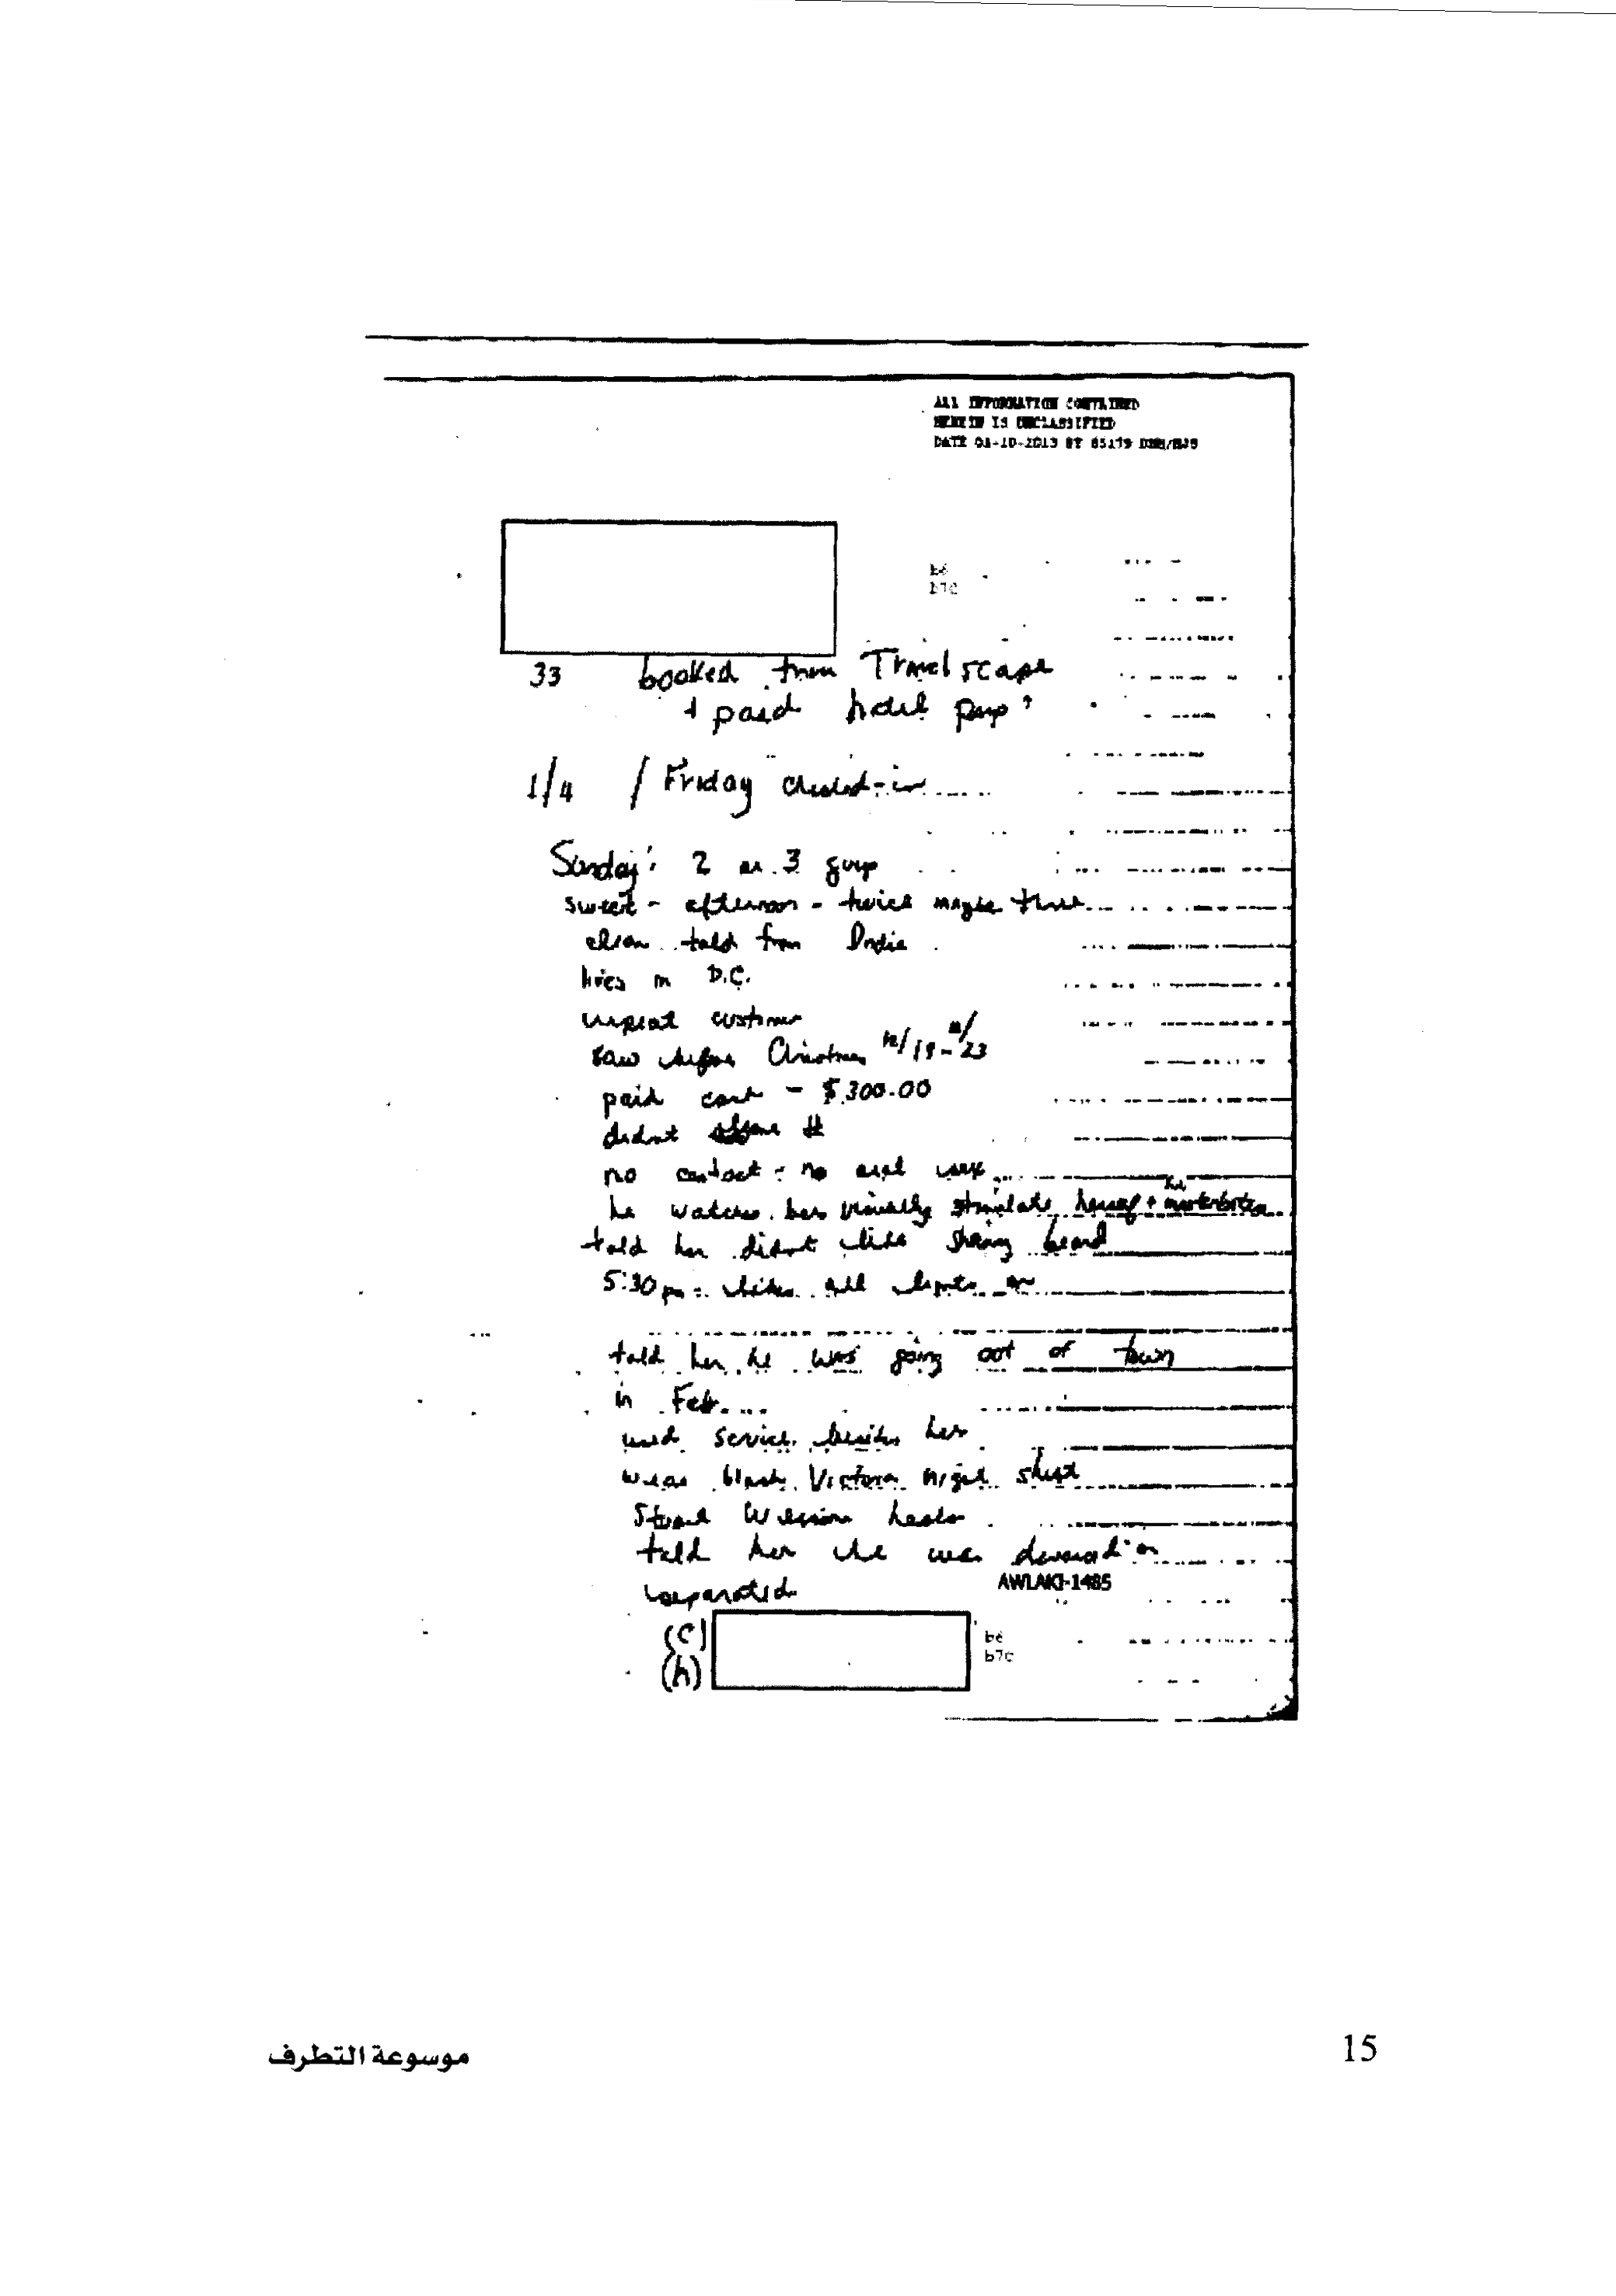 ALL INFORMATION CONTAINED
HEREIN IS UNCLASSIFIED
DATE 01-10-2013 BY 65179 DMH/MJS
b6
b7C
33 booked from Travelscape
+ paid hotel
1/4 / Friday checked-in
Sunday: 2 or 3 guys
sweet - afternoon - twice maybe three
clean told from India
lives in D.C.
repeat customer
saw before Christmas 12/19-23
paid cash - $300.00
didnt #
no contact - no oral sex
he watches her visually stimulate herself + he masturbates
told her didnt like beard
5:30 pm - likes all lights on
told her he was going out of town
in Feb
used service besides her
wear black Victoria night shirt
heels
told her he was divorced or
separated
AWLAKI-1485
(c)
(h)
b6
b7C
موسوعة التطرف
15